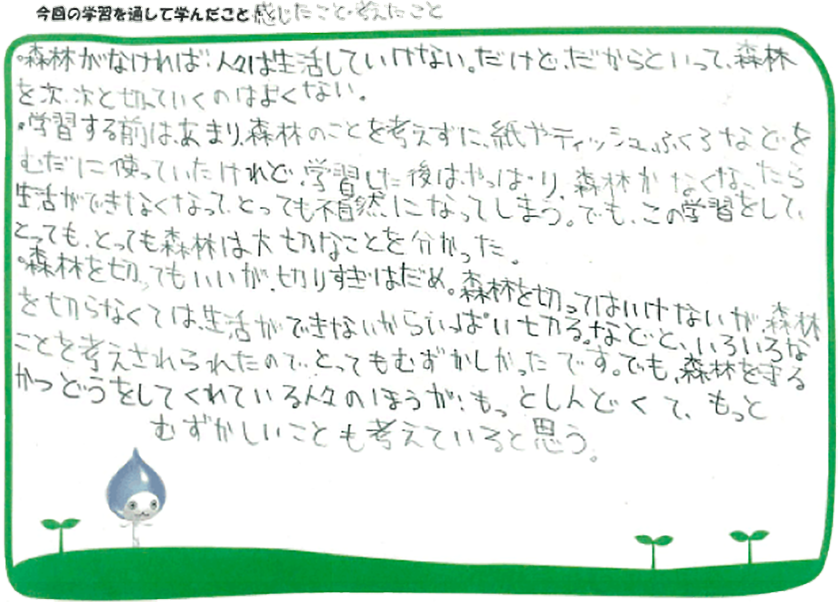 今回の学習を通して学んだこと 感じたこと・考えたこと
・森林がなければ、人々は生活していけない。だけど、だからといって、森林
を次、次と切っていくのはよくない。
・学習する前は、あまり、森林のことを考えずに、紙やティッシュ、ふくろなどを
むだに使っていたけれど、学習した後は、やっぱり、森林がなくなったら
生活ができなくなって、とっても不自然になってしまう。でも、この学習をして、
とっても、とっても森林は大切なことを分かった。
・森林を切ってもいいが、切りすぎはだめ。森林を切ってはいけないが、森林
を切らなくては、生活ができないからいっぱい切る。などと、いろいろな
ことを考えされられたので、とってもむずかしかったです。でも、森林を守る
かつどうをしてくれている人々のほうが、もっとしんどくて、もっと
むずかしいことも考えていると思う。